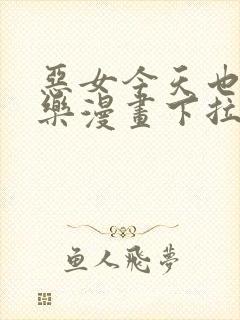 惡女今天也
樂漫畫下拉
鱼人飛夢